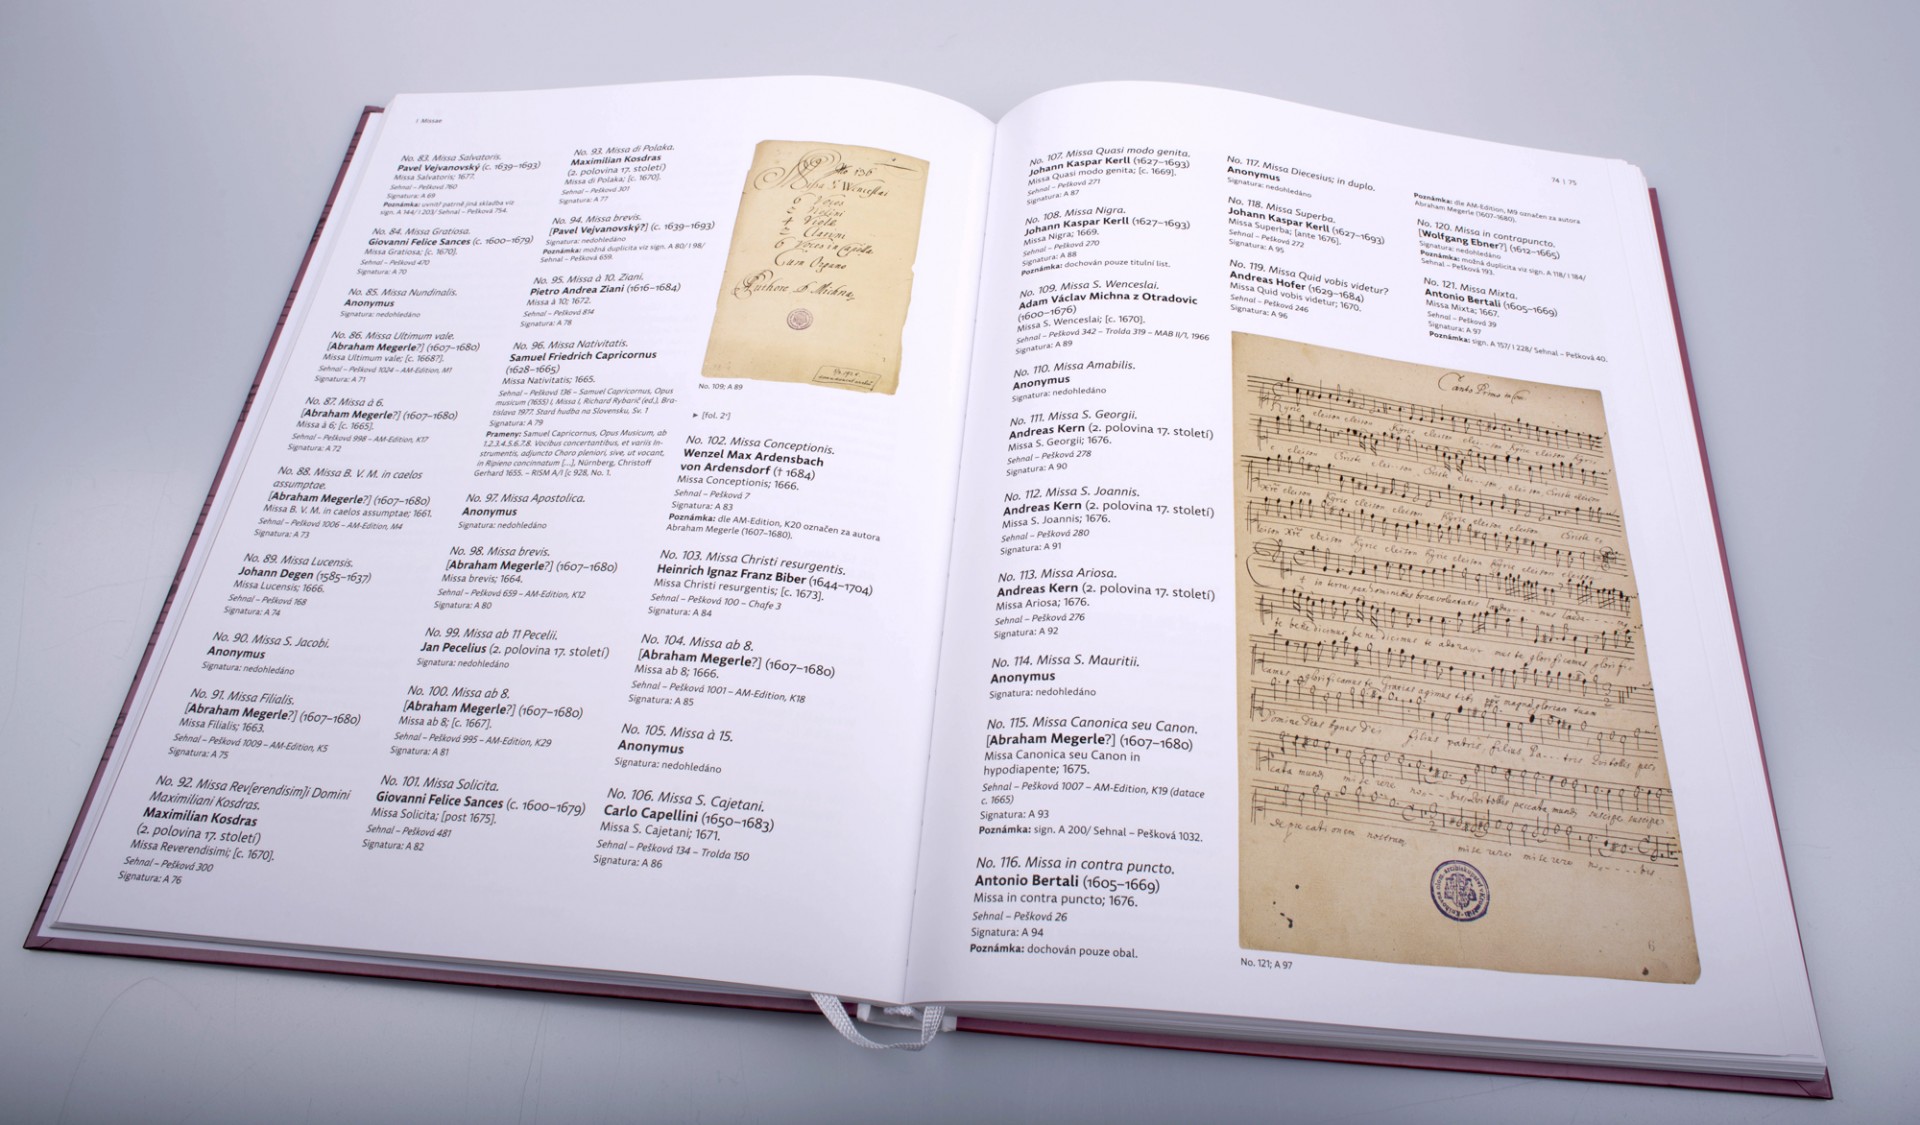 I Missae
No. 83. Missa Salvatoris.
Pavel Vejvanovský (c. 1639–1693)
Missa Salvatoris; 1677.
Sehnal – Pešková 760
Signatura: A 69
Poznámka: uvnitř patrně jiná skladba viz
sign. A 144/ I 203/ Sehnal – Pešková 754.
No. 84. Missa Gratiosa.
Giovanni Felice Sances (c. 1600–1679)
Missa Gratiosa; [c. 1670].
Sehnal – Pešková 470
Signatura: A 70
No. 85. Missa Nundinalis.
Anonymus
Signatura: nedohledáno
No. 86. Missa Ultimum vale.
[Abraham Megerle?] (1607–1680)
Missa Ultimum vale; [c. 1668?].
Sehnal – Pešková 1024 – AM-Edition, M1
Signatura: A 71
No. 87. Missa à 6.
[Abraham Megerle?] (1607–1680)
Missa à 6; [c. 1665].
Sehnal – Pešková 998 – AM-Edition, K17
Signatura: A 72
No. 88. Missa B. V. M. in caelos
assumptae.
[Abraham Megerle?] (1607–1680)
Missa B. V. M. in caelos assumptae; 1661.
Sehnal – Pešková 1006 – AM-Edition, M4
Signatura: A 73
No. 89. Missa Lucensis.
Johann Degen (1585–1637)
Missa Lucensis; 1666.
Sehnal – Pešková 168
Signatura: A 74
No. 90. Missa S. Jacobi.
Anonymus
Signatura: nedohledáno
No. 91. Missa Filialis.
[Abraham Megerle?] (1607–1680)
Missa Filialis; 1663.
Sehnal – Pešková 1009 – AM-Edition, K5
Signatura: A 75
No. 92. Missa Rev[erendisim]i Domini
Maximiliani Kosdras.
Maximilian Kosdras
(2. polovina 17. století)
Missa Reverendisimi; [c. 1670].
Sehnal – Pešková 300
Signatura: A 76
No. 93. Missa di Polaka.
Maximilian Kosdras
(2. polovina 17. století)
Missa di Polaka; [c. 1670].
Sehnal – Pešková 301
Signatura: A 77
No. 94. Missa brevis.
[Pavel Vejvanovský?] (c. 1639–1693)
Signatura: nedohledáno
Poznámka: možná duplicita viz sign. A 80/ I 98/
Sehnal – Pešková 659.
No. 95. Missa à 10. Ziani.
Pietro Andrea Ziani (1616–1684)
Missa à 10; 1672.
Sehnal – Pešková 814
Signatura: A 78
No. 96. Missa Nativitatis.
Samuel Friedrich Capricornus
(1628–1665)
Missa Nativitatis; 1665.
Sehnal – Pešková 136 – Samuel Capricornus, Opus
musicum (1655) I, Missa I, Richard Rybarič (ed.), Bra-
tislava 1977. Stará hudba na Slovensku, Sv. 1
Signatura: A 79
Prameny: Samuel Capricornus, Opus Musicum, ab
1.2.3.4.5.6.7.8. Vocibus concertantibus, et variis In-
strumentis, adjuncto Choro pleniori, sive, ut vocant,
in Ripieno concinnatum [...], Nürnberg, Christoff
Gerhard 1655. – RISM A/I [c 928, No. 1.
No. 97. Missa Apostolica.
Anonymus
Signatura: nedohledáno
No. 98. Missa brevis.
[Abraham Megerle?] (1607–1680)
Missa brevis; 1664.
Sehnal – Pešková 659 – AM-Edition, K12
Signatura: A 80
No. 99. Missa ab 11 Pecelii.
Jan Pecelius (2. polovina 17. století)
Signatura: nedohledáno
No. 100. Missa ab 8.
[Abraham Megerle?] (1607–1680)
Missa ab 8; [c. 1667].
Sehnal – Pešková 995 – AM-Edition, K29
Signatura: A 81
No. 101. Missa Solicita.
Giovanni Felice Sances (c. 1600–1679)
Missa Solicita; [post 1675].
Sehnal – Pešková 481
Signatura: A 82
No 136
Missa S Wenceslai
6 Voces
2 Violini
4 Violae
2 Clarini
6 Voces in capella
Cum Organo
Authore D Michna
No. 109; A 89
► [fol. 2r]
No. 102. Missa Conceptionis.
Wenzel Max Ardensbach
von Ardensdorf († 1684)
Missa Conceptionis; 1666.
Sehnal – Pešková 7
Signatura: A 83
Poznámka: dle AM-Edition, K20 označen za autora
Abraham Megerle (1607–1680).
No. 103. Missa Christi resurgentis.
Heinrich Ignaz Franz Biber (1644–1704)
Missa Christi resurgentis; [c. 1673].
Sehnal – Pešková 100 – Chafe 3
Signatura: A 84
No. 104. Missa ab 8.
[Abraham Megerle?] (1607–1680)
Missa ab 8; 1666.
Sehnal – Pešková 1001 – AM-Edition, K18
Signatura: A 85
No. 105. Missa à 15.
Anonymus
Signatura: nedohledáno
No. 106. Missa S. Cajetani.
Carlo Capellini (1650–1683)
Missa S. Cajetani; 1671.
Sehnal – Pešková 134 – Trolda 150
Signatura: A 86
74 | 75
No. 107. Missa Quasi modo genita.
Johann Kaspar Kerll (1627–1693)
Missa Quasi modo genita; [c. 1669].
Sehnal – Pešková 271
Signatura: A 87
No. 108. Missa Nigra.
Johann Kaspar Kerll (1627–1693)
Missa Nigra; 1669.
Sehnal – Pešková 270
Signatura: A 88
Poznámka: dochován pouze titulní list.
No. 109. Missa S. Wenceslai.
Adam Václav Michna z Otradovic
(1600–1676)
Missa S. Wenceslai; [c. 1670].
Sehnal – Pešková 342 – Trolda 319 – MAB II/1, 1966
Signatura: A 89
No. 110. Missa Amabilis.
Anonymus
Signatura: nedohledáno
No. 111. Missa S. Georgii.
Andreas Kern (2. polovina 17. století)
Missa S. Georgii; 1676.
Sehnal – Pešková 278
Signatura: A 90
No. 112. Missa S. Joannis.
Andreas Kern (2. polovina 17. století)
Missa S. Joannis; 1676.
Sehnal – Pešková 280
Signatura: A 91
No. 113. Missa Ariosa.
Andreas Kern (2. polovina 17. století)
Missa Ariosa; 1676.
Sehnal – Pešková 276
Signatura: A 92
No. 114. Missa S. Mauritii.
Anonymus
Signatura: nedohledáno
No. 115. Missa Canonica seu Canon.
[Abraham Megerle?] (1607–1680)
Missa Canonica seu Canon in
hypodiapente; 1675.
Sehnal – Pešková 1007 – AM-Edition, K19 (datace
c. 1665)
Signatura: A 93
Poznámka: sign. A 200/ Sehnal – Pešková 1032.
No. 116. Missa in contra puncto.
Antonio Bertali (1605–1669)
Missa in contra puncto; 1676.
Sehnal – Pešková 26
Signatura: A 94
Poznámka: dochován pouze obal.
No. 117. Missa Diecesius; in duplo.
Anonymus
Signatura: nedohledáno
No. 118. Missa Superba.
Johann Kaspar Kerll (1627–1693)
Missa Superba; [ante 1676].
Sehnal – Pešková 272
Signatura: A 95
No. 119. Missa Quid vobis videtur?
Andreas Hofer (1629–1684)
Missa Quid vobis videtur; 1670.
Sehnal – Pešková 246
Signatura: A 96
Poznámka: dle AM-Edition, M9 označen za autora
Abraham Megerle (1607–1680).
No. 120. Missa in contrapuncto.
[Wolfgang Ebner?] (1612–1665)
Signatura: nedohledáno
Poznámka: možná duplicita viz sign. A 118/ I 184/
Sehnal – Pešková 193.
No. 121. Missa Mixta.
Antonio Bertali (1605–1669)
Missa Mixta; 1667.
Sehnal – Pešková 39
Signatura: A 97
Poznámka: sign. A 157/ I 228/ Sehnal – Pešková 40.
Canto Primo
Kyrie eleison Kyrie eleison
Kyrie eleison Kyrie eleison
et in terra pax hominibus bonae voluntatis
te benedicimus
glorificamus te Gratias agimus tibi
Domine Deus Agnus Dei filius patris
miserere nobis
deprecationem nostram
No. 121; A 97